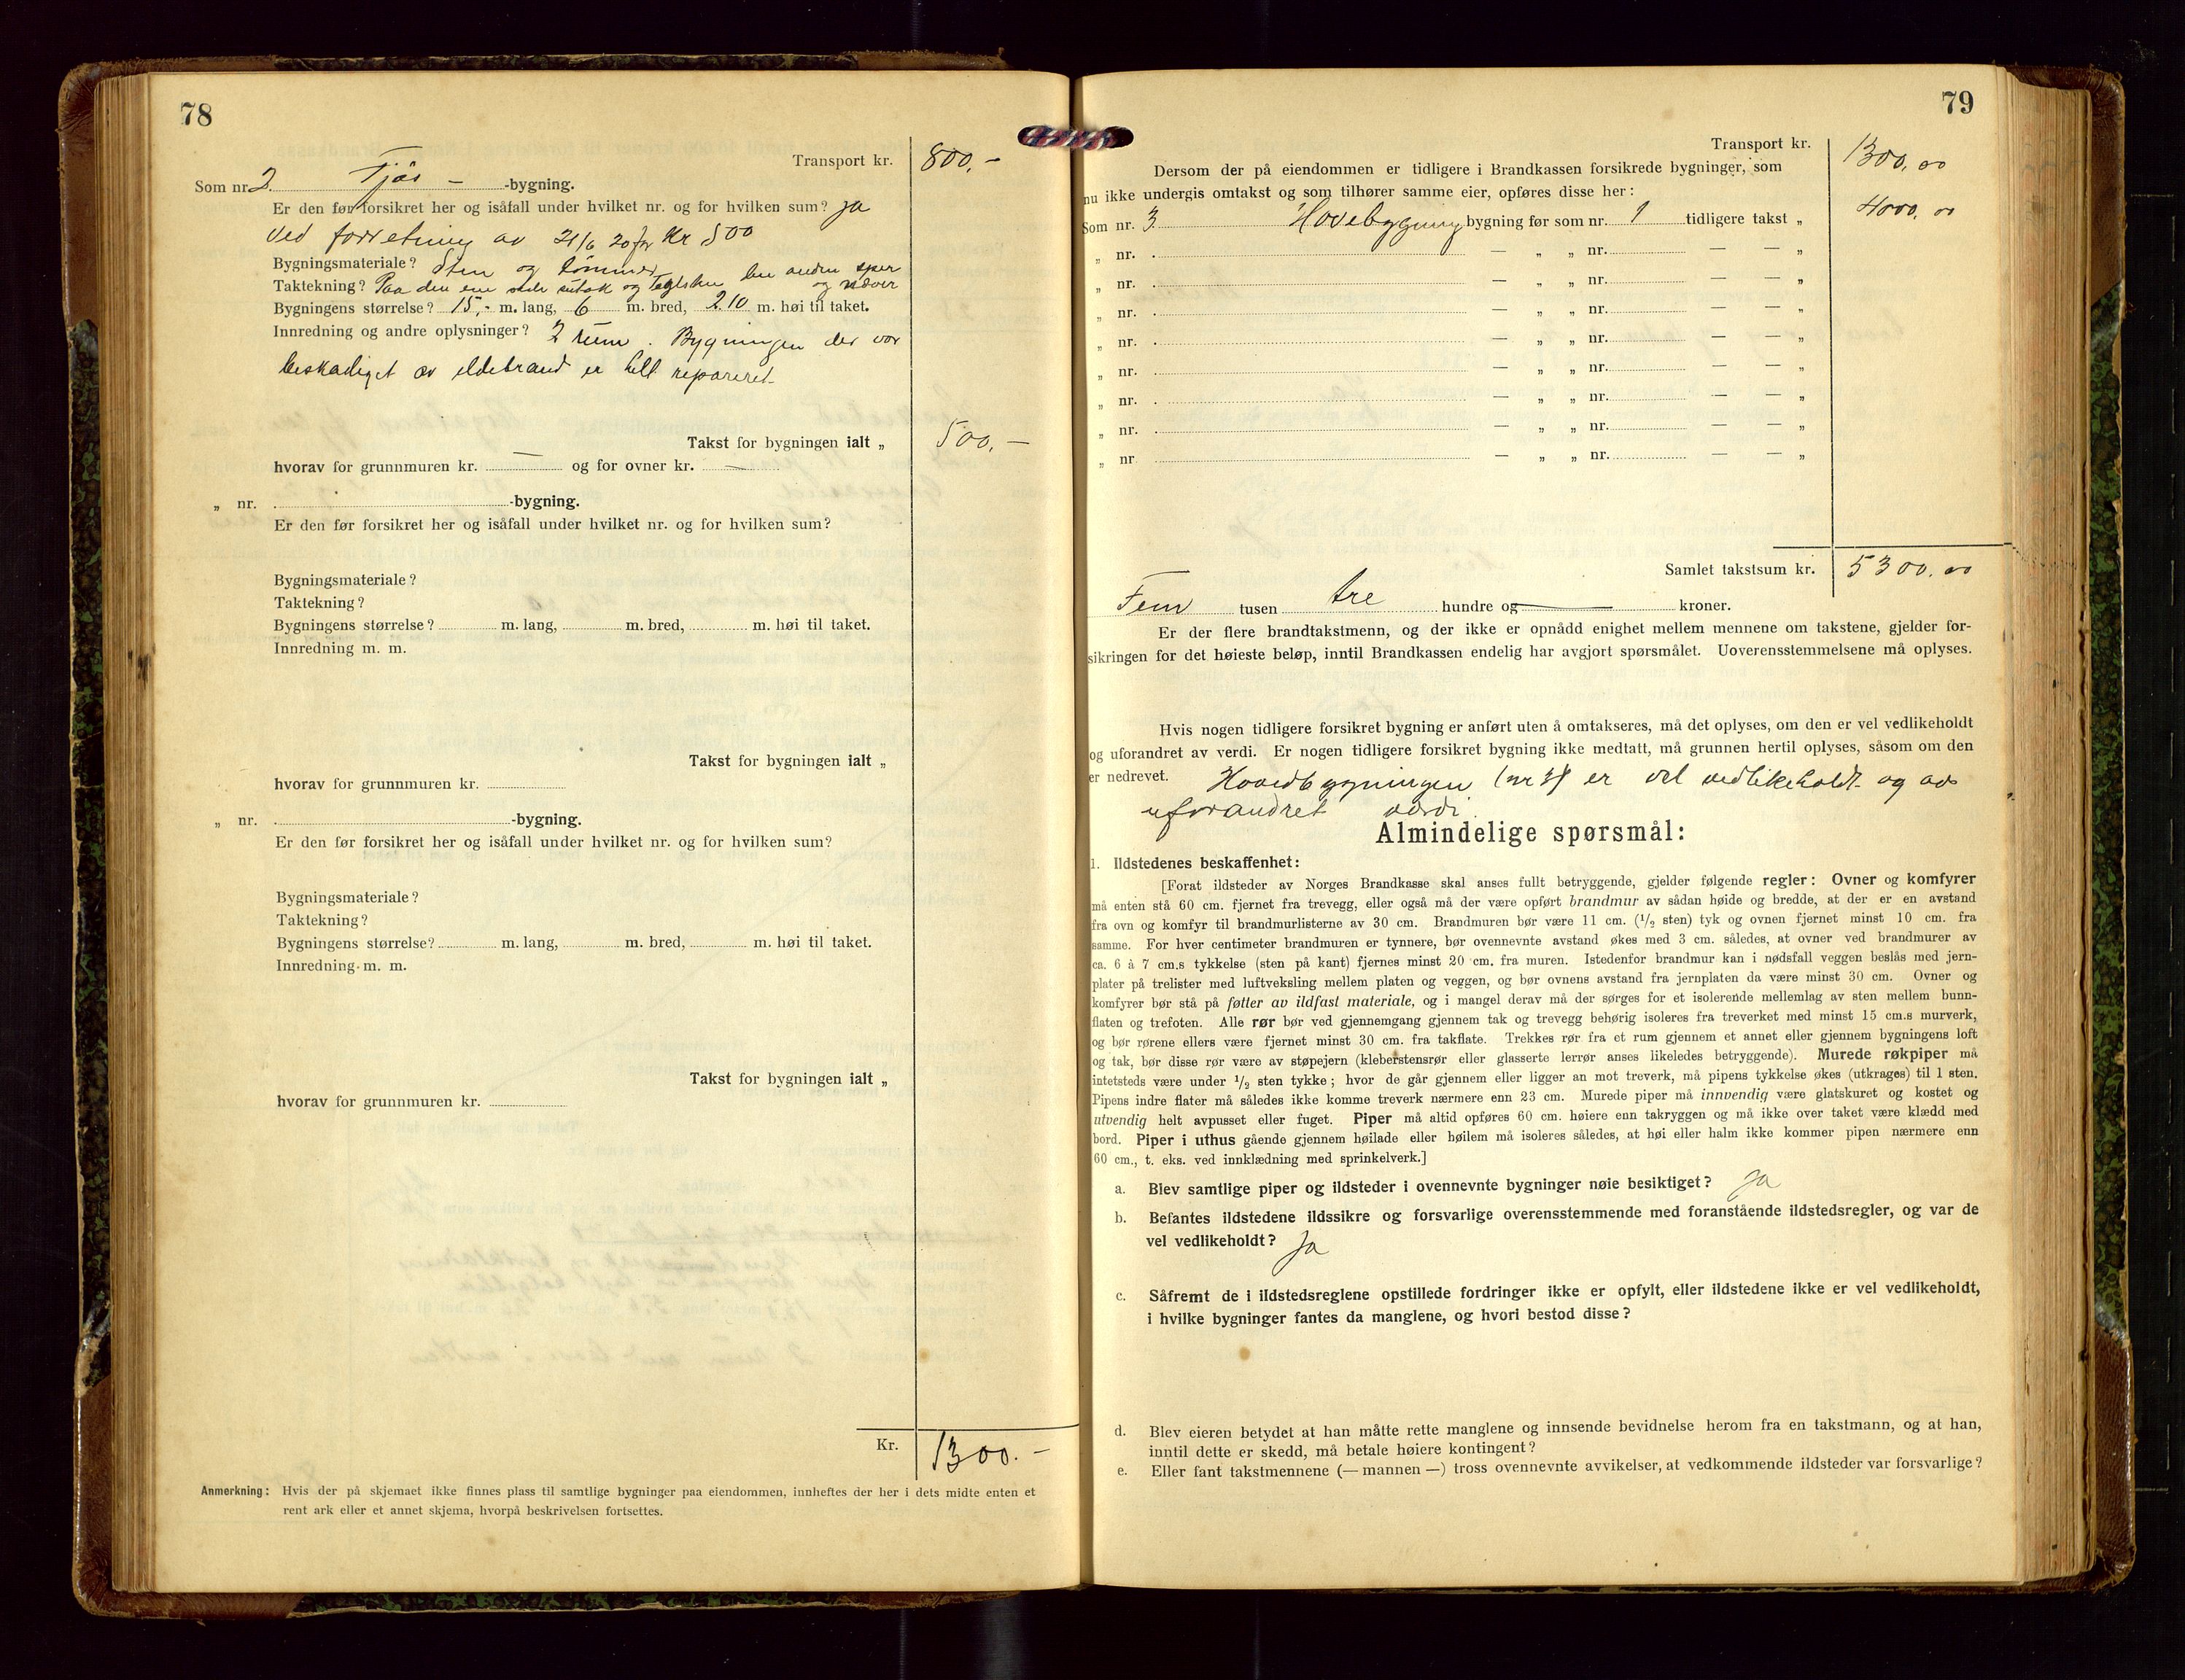 78
Transport kr. 800,-
Som nr. 2. Fjøs - -bygning.
Er den før forsikret her og isåfall under hvilket nr. og for hvilken sum? ja
Ved forretning av 21/6 20 for Kr 500
Bygningsmateriale? Sten og tømmer
Taktekning? Paa den ene side sutak og Taglsten den anden sper
og næver
Bygningens størrelse? 15,- m. lang, 6 m. bred, 2.10 m. høi til taket.
Innredning og andre oplysninger? 2 rum. Bygningen der var
beskadiget av eldebrand er helt repareret.
Takst for bygningen ialt „ 500,-
hvorav for grunnmuren kr. — og for ovner kr. —
„ nr. -bygning.
Er den før forsikret her og isåfall under hvilket nr. og for hvilken sum?
Bygningsmateriale?
Taktekning?
Bygningens størrelse? m. lang, m. bred, m. høi til taket.
Innredning m. m.
Takst for bygningen ialt „
hvorav for grunnmuren kr.
„ nr. -bygning.
Er den før forsikret her og isåfall under hvilket nr. og for hvilken sum?
Bygningsmateriale?
Taktekning?
Bygningens størrelse? m. lang, m. bred, m. høi til taket.
Innredning m. m.
Takst for bygningen ialt „
hvorav for grunnmuren kr.
Kr. 1300.-
Anmerkning: Hvis der på skjemaet ikke finnes plass til samtlige bygninger paa eiendommen, innheftes der her i dets midte enten et
rent ark eller et annet skjema, hvorpå beskrivelsen fortsettes.
79
Transport kr. 1300,00
Dersom der på eiendommen er tidligere i Brandkassen forsikrede bygninger, som
nu ikke undergis omtakst og som tilhører samme eier, opføres disse her:
Som nr. 3 Hovebygning bygning før som nr. 1 tidligere takst „ 4000,00
„ nr. . — „ „ nr. — — „
„ nr. . — „ „ nr. — — „
„ nr. . — „ „ nr. — — „
„ nr. . — „ „ nr. — — „
„ nr. . — „ „ nr. — — „
„ nr. . — „ „ nr. — — „
„ nr. . — „ „ nr. — — „
„ nr — „ „ nr. — — „
Samlet takstsum kr. 5300,00
Fem tusen tre hundre og — kroner.
Er der flere brandtakstmenn, og der ikke er opnådd enighet mellem mennene om takstene, gjelder for-
sikringen for det høieste beløp, inntil Brandkassen endelig har avgjort spørsmålet. Uoverensstemmelsene må oplyses.
Hvis nogen tidligere forsikret bygning er anført uten å omtakseres, må det oplyses, om den er vel vedlikeholdt
og uforandret av verdi. Er nogen tidligere forsikret bygning ikke medtatt, må grunnen hertil oplyses, såsom om den
er nedrevet. Hovedbygningen (nr 3) er vel vedlikeholdt og av
uforandret verdi.
Almindelige spørsmål:
1. Ildstedenes beskaffenhet:
[Forat ildsteder av Norges Brandkasse skal anses fullt betryggende, gjelder følgende regler: Ovner og komfyrer
må enten stå 60 cm. fjernet fra trevegg, eller også må der være opført brandmur av sådan høide og bredde, at der er en avstand
fra ovn og komfyr til brandmurlisterne av 30 cm. Brandmuren bør være 11 cm. (1/2 sten) tyk og ovnen fjernet minst 10 cm. fra
samme. For hver centimeter brandmuren er tynnere, bør ovennevnte avstand økes med 3 cm. således, at ovner ved brandmurer av
ca. 6 à 7 cm.s tykkelse (sten på kant) fjernes minst 20 cm. fra muren. Istedenfor brandmur kan i nødsfall veggen beslås med jern-
plater på trelister med luftveksling mellem platen og veggen, og bør ovnens avstand fra jernplaten da være minst 30 cm. Ovner og
komfyrer bør stå på føtter av ildfast materiale, og i mangel derav må der sørges for et isolerende mellemlag av sten mellem bunn-
flaten og trefoten. Alle rør bør ved gjennemgang gjennem tak og trevegg behørig isoleres fra treverket med minst 15 cm.s murverk,
og bør rørene ellers være fjernet minst 30 cm. fra takflate. Trekkes rør fra et rum gjennem et annet eller gjennem bygningens loft
og tak, bør disse rør være av støpejern (kleberstensrør eller glasserte lerrør anses likeledes betryggende). Murede røkpiper må
intetsteds være under 1/2 sten tykke; hvor de går gjennem eller ligger an mot treverk, må pipens tykkelse økes (utkrages) til 1 sten.
Pipens indre flater må således ikke komme treverk nærmere enn 23 cm. Murede piper må innvendig være glatskuret og kostet og
utvendig helt avpusset eller fuget. Piper må altid opføres 60 cm. høiere enn takryggen og må ikke over taket være klædd med
bord. Piper i uthus gående gjennem høilade eller høilem må isoleres således, at høi eller halm ikke kommer pipen nærmere enn
60 cm., t. eks. ved innklædning med sprinkelverk.]
a. Blev samtlige piper og ildsteder i ovennevnte bygninger nøie besiktiget? ja
b. Befantes ildstedene ildssikre og forsvarlige overensstemmende med foranstående ildstedsregler, og var de
vel vedlikeholdt? ja
c. Såfremt de i ildstedsreglene opstillede fordringer ikke er opfylt, eller ildstedene ikke er vel vedlikeholdt,
i hvilke bygninger fantes da manglene, og hvori bestod disse?
d. Blev eieren betydet at han måtte rette manglene og innsende bevidnelse herom fra en takstmann, og at han,
inntil dette er skedd, må betale høiere kontingent?
e. Eller fant takstmennene (— mannen —) tross ovennevnte avvikelser, at vedkommende ildsteder var forsvarlige?